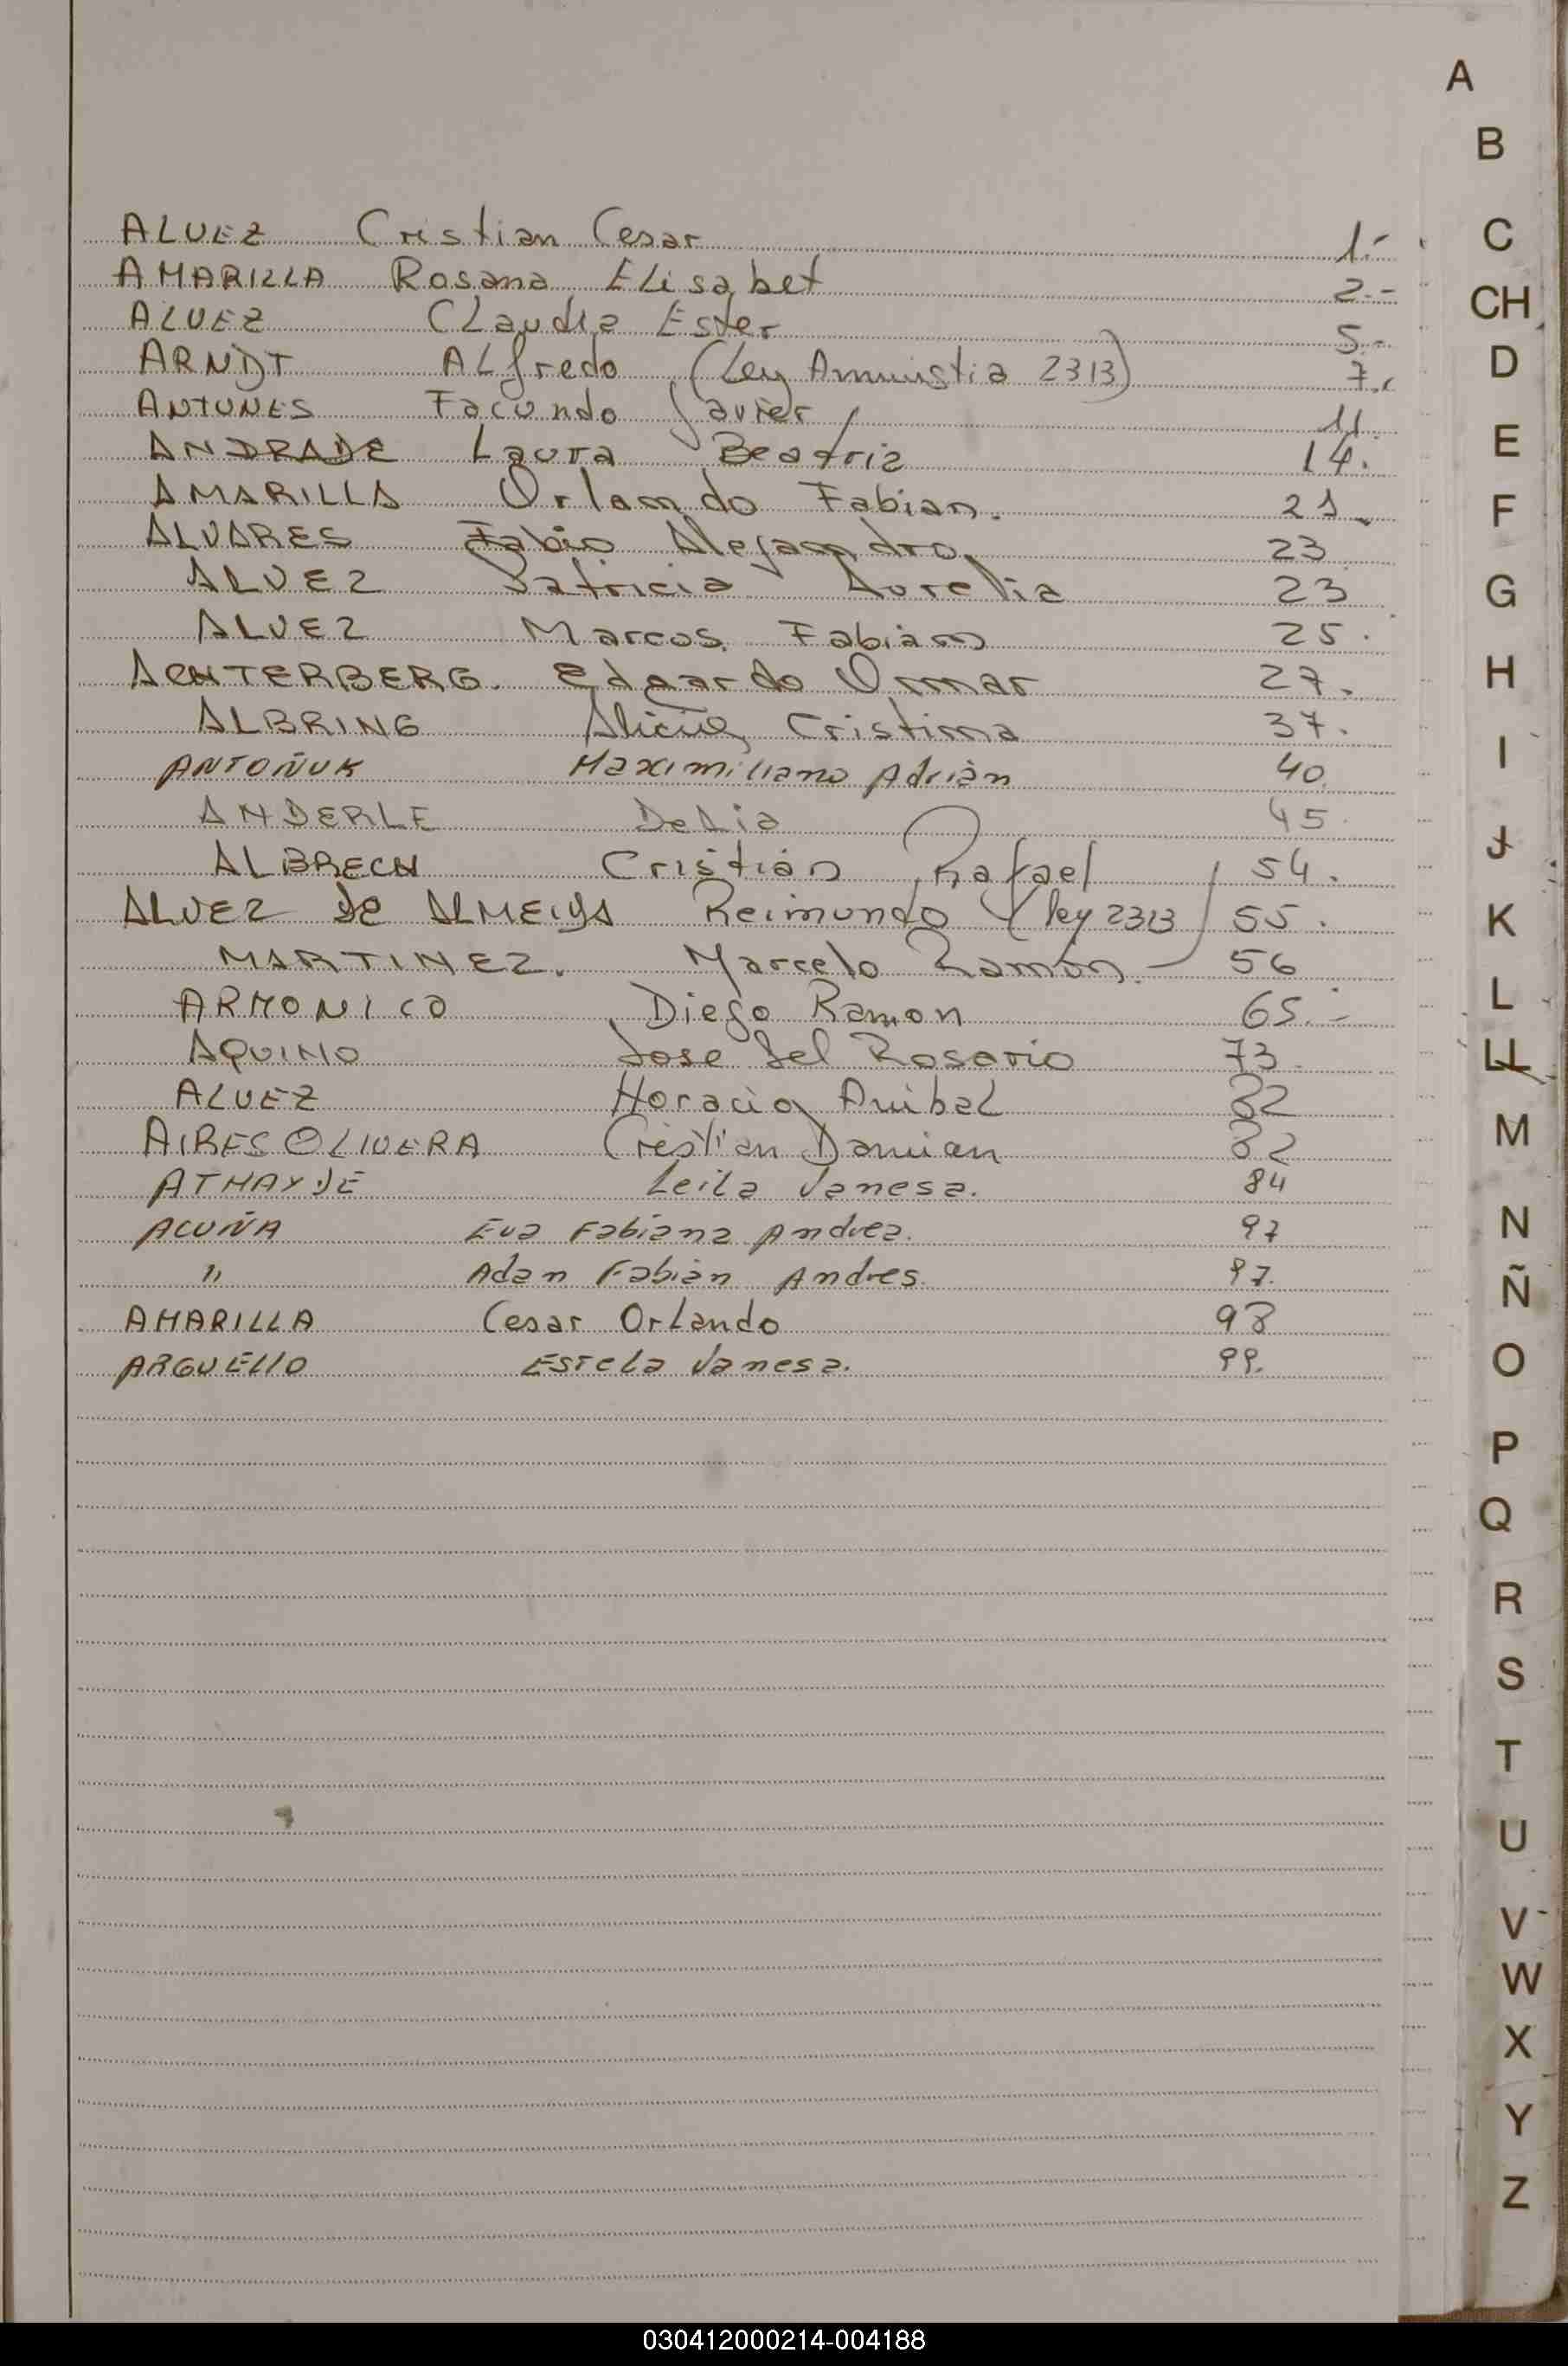 ALVEZ Cristian Cesar 1.-
AMARILLA Rosana Elisabet 2.-
ALVEZ Claudia Ester 5.-
ARNDT Alfredo (Ley Amnistia 2313) 7.-
ANTUNES Facundo Javier 11.
ANDRADE Laura Beatriz 14.
AMARILLA Orlando Fabian. 21.
ALVARES Fabio Alejandro. 23
ALVEZ Patricia Aurelia 23
ALVEZ Marcos Fabián 25.
ACHTERBERG. Edgardo Omar 27.
ALBRING Alicia Cristina 37.
ANTOÑUK Maximiliano Adrián 40.
ANDERLE Delia 45.
ALBRECH Cristián Rafael 54.
ALVEZ de ALMEIDA Reimundo (ley 2313) 55.
MARTINEZ. Marcelo Ramón. 56
ARMONICO Diego Ramon 65.-
AQUINO Jose del Rosario 73.
ALVEZ Horacio Anibal 82
AIRES OLIVERA Cristian Damian 82
ATHAYDE Leila Vanesa. 84
ACUÑA Eva Fabiana Andrea. 97
" Adan Fabián Andres. 97.
AMARILLA Cesar Orlando 98
ARGUELLO Estela Vanesa. 99.
A
B
C
CH
D
E
F
G
H
I
J
K
L
LL
M
N
Ñ
O
P
Q
R
S
T
U
V
W
X
Y
Z
030412000214-004188